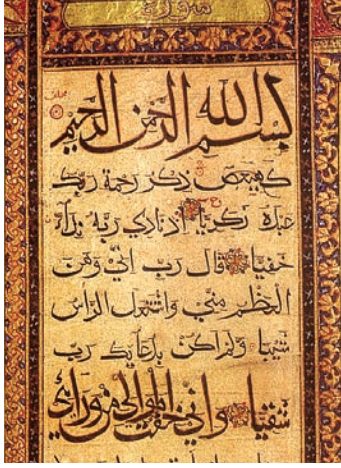 سورة
بسم الله الرحمن الرحيم
كهيعص ذكر رحمة ربك
عبده زكريا اذ نادى ربه نداء
خفيا قال رب اني وهن
العظم مني واشتعل الراس
شيبا ولم اكن بدعائك رب
شقيا واني خفت الموالي من ورائي